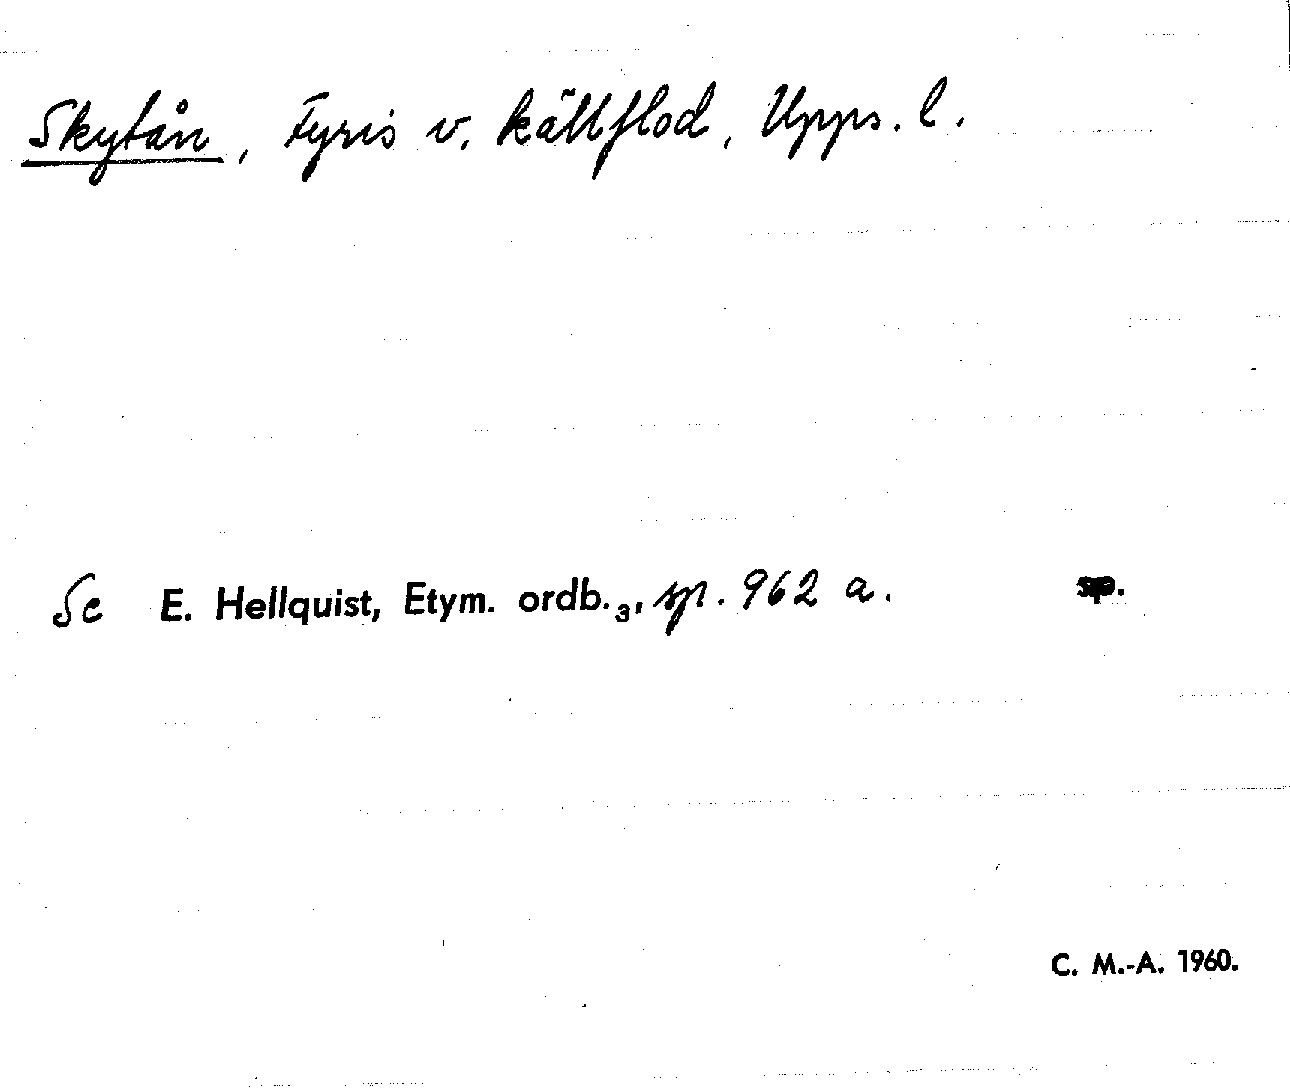 Skytån, Fyris v. källflod, Upps. l.
Se E. Hellquist, Etym. ordb.₃, sp. 962 a. sp.
C. M.-A. 1960.